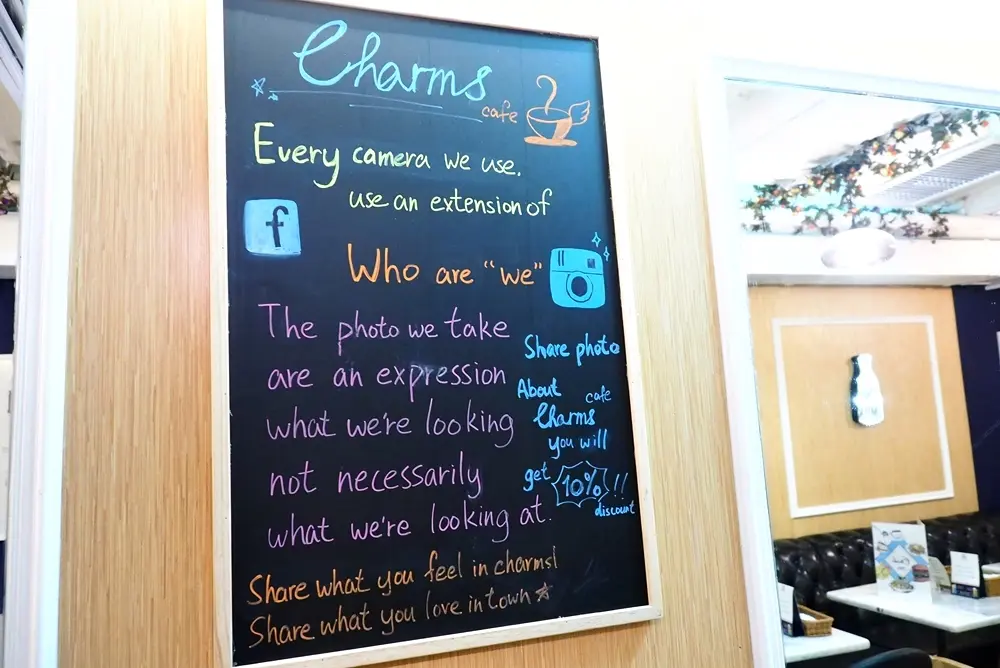 Charms
cafe
Every camera we use.
use an extension of
f
Who are "we"
The photo we take
are an expression
what we're looking
not necessarily
what we're looking at.
Share photo
About cafe
Charms
you will
get 10% !!
discount
Share what you feel in charms!
Share what you love in town